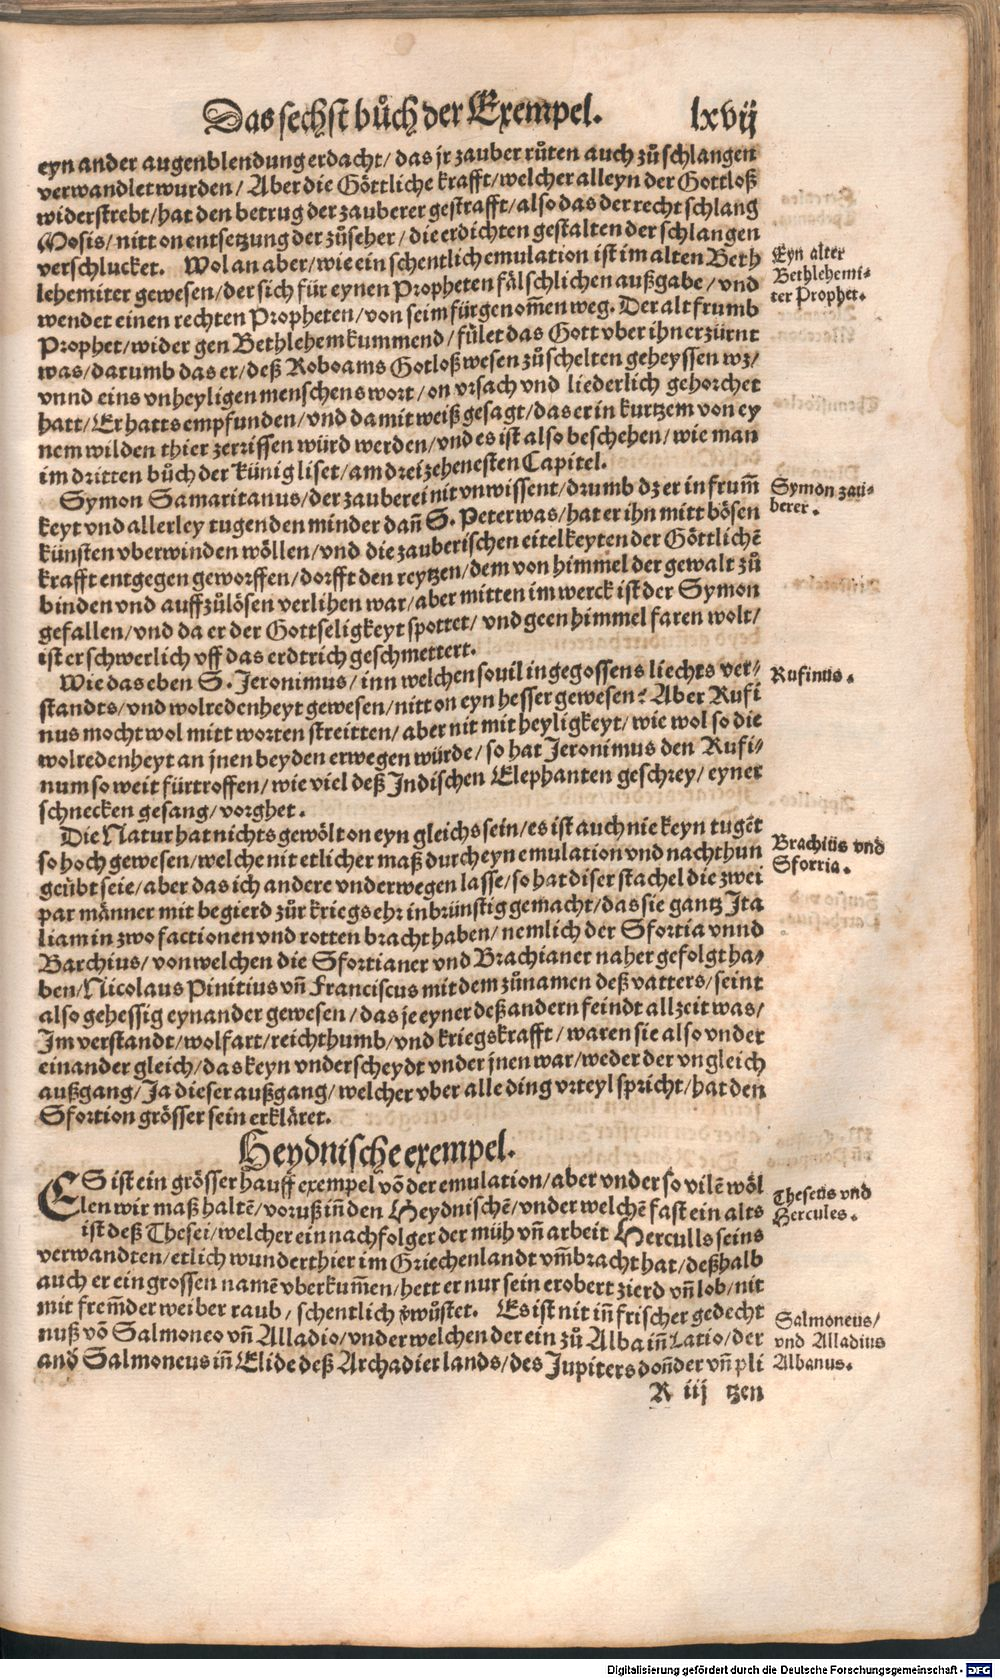 Das sechst bůch der Exempel. lxvij
eyn ander augenblendung erdacht/ das jr zauber růten auch zů schlangen
verwandlet wurden/ Aber die Göttliche krafft/ welcher alleyn der Gottloß
widerstrebt/ hat den betrug der zauberer gestrafft/ also das der recht schlang
Mosis/ nitt on entsetzung der zůseher/ die erdichten gestalten der schlangen
verschlucket. Wolan aber/ wie ein schentlich emulation ist im alten Beth
lehemiter gewesen/ der sich für eynen Propheten fälschlichen außgabe/ vnd
wendet einen rechten Propheten/ von seim fürgenom̃en weg. Der alt frumb
Prophet/ wider gen Bethlehem kummend/ fület das Gott vber ihn erzürnt
was/ darumb das er/ deß Roboams Gotloß wesen zů schelten geheyssen wz/
vnnd eins vnheyligen menschens wort/ on vrsach vnd liederlich gehorchet
hatt/ Er hatts empfunden/ vnd damit weiß gesagt/ das er in kurtzem von ey
nem wilden thier zerrissen würd werden/ vnd es ist also beschehen/ wie man
im dritten bůch der künig liset/ am dreizehenesten Capitel.
Eyn alter
Bethlehemi-
ter Prophet.
Symon Samaritanus/ der zauberei nit vnwissent/ drumb dz er in frum̃
keyt vnd allerley tugenden minder dañ S. Peter was/ hat er ihn mitt bösen
künsten vberwinden wöllen/ vnd die zauberischen eitelkeyten der Göttlichẽ
krafft entgegen geworffen/ dorfft den reytzen/ dem von himmel der gewalt zů
binden vnd auffzůlösen verlihen war/ aber mitten im werck ist der Symon
gefallen/ vnd da er der Gottseligkeyt spottet/ vnd geen himmel faren wolt/
ist er schwerlich vff das erdtrich geschmettert.
Symon zau-
berer.
Wie das eben S. Jeronimus/ inn welchen souil ingegossens liechts ver-
standts/ vnd wolredenheyt gewesen/ nitt on eyn hesser gewesen? Aber Rufi
nus mocht wol mitt worten streitten/ aber nit mit heyligkeyt/ wie wol so die
wolredenheyt an jnen beyden erwegen würde/ so hat Jeronimus den Rufi-
num so weit fürtroffen/ wie viel deß Indischen Elephanten geschrey/ eyner
schnecken gesang/ vorghet.
Rufinus.
Die Natur hat nichts gewölt on eyn gleichs sein/ es ist auch nie keyn tugẽt
so hoch gewesen/ welche nit etlicher maß durch eyn emulation vnd nachthun
geübt seie/ aber das ich andere vnderwegen lasse/ so hat diser stachel die zwei
par männer mit begierd zůr kriegs ehr inbrünstig gemacht/ das sie gantz Ita
liam in zwo factionen vnd rotten bracht haben/ nemlich der Sfortia vnnd
Barchius/ von welchen die Sfortianer vnd Brachianer naher gefolgt ha-
ben/ Nicolaus Pinitius vñ Franciscus mit dem zůnamen deß vatters/ seint
also gehessig eynander gewesen/ das je eyner deß andern feindt allzeit was/
Im verstandt/ wolfart/ reichthumb/ vnd kriegskrafft/ waren sie also vnder
einander gleich/ das keyn vnderscheydt vnder jnen war/ weder der vngleich
außgang/ Ja dieser außgang/ welcher vber alle ding vrteyl spricht/ hat den
Sfortion grösser sein erkläret.
Brachiüs vnd
Sfortia.
Heydnische exempel.
ES ist ein grösser hauff exempel võ der emulation/ aber vnder so vilẽ wöl
len wir maß haltẽ/ voruß iñ den Heydnischẽ/ vnder welchẽ fast ein alts
ist deß Thesei/ welcher ein nachfolger der müh vñ arbeit Herculls seins
verwandten/ etlich wunderthier im Griechenlandt vm̃bracht hat/ deßhalb
auch er ein grossen namẽ vberkum̃en/ hett er nur sein erobert zierd vñ lob/ nit
mit frem̃der weiber raub/ schentlich v̈wüstet. Es ist nit iñ frischer gedecht
nuß võ Salmoneo vñ Alladio/ vnder welchen der ein zů Alba iñ Latio/ der
and̃ Salmoneus iñ Elide deß Archadier lands/ des Jupiters doñder vñ pli
Theseüs vnd
Hercules.
Salmoneüs/
vnd Alladius
Albanus.
R iij tzen
Digitalisierung gefördert durch die Deutsche Forschungsgemeinschaft - DFG